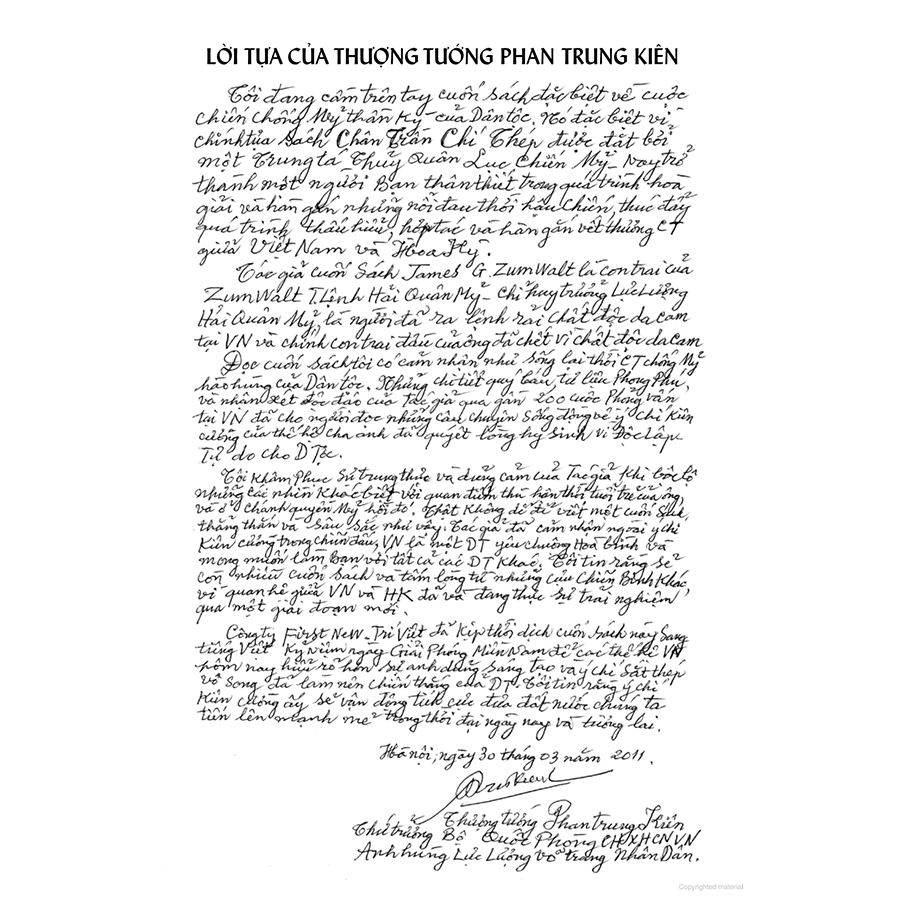 LỜI TỰA CỦA THƯỢNG TƯỚNG PHAN TRUNG KIÊN
Tôi đang cầm trên tay cuốn sách đặc biệt về cuộc
chiến chống Mỹ thần kỳ của Dân tộc. Nó đặc biệt vì
chính tựa sách Chân Trần Chí Thép được đặt bởi
một Trung tá Thuỷ Quân Lục Chiến Mỹ - nay trở
thành một người Bạn thân thiết trong quá trình hoà
giải và hàn gắn những nỗi đau thời hậu chiến, thúc đẩy
quá trình thấu hiểu, hợp tác và hàn gắn vết thương CT
giữa Việt Nam và Hoa Kỳ.
Tác giả cuốn sách James G. ZumWalt là con trai của
ZumWalt T.Lệnh Hải Quân Mỹ - chỉ huy trưởng Lực Lượng
Hải Quân Mỹ, là người đã ra lệnh rải chất độc da cam
tại VN và chính con trai đầu của ông đã chết vì chất độc da cam
Đọc cuốn sách tôi có cảm nhận như sống lại thời CT chống Mỹ
hào hùng của Dân tộc. Những chi tiết quý báu, tư liệu phong phú,
và nhận xét độc đáo của tác giả qua gần 200 cuộc phỏng vấn
tại VN đã cho người đọc những câu chuyện sống động về ý chí kiên
cường của thế hệ cha anh đã quyết lòng hy sinh vì Độc Lập
Tự do cho D Tộc.
Tôi khâm phục sự trung thực và dũng cảm của Tác giả khi bộc lộ
những cái nhìn khác biệt với quan điểm thù hận thời tuổi trẻ của ông,
và ở chánh quyền Mỹ hồi đó. Thật không dễ để viết một cuốn sách
thẳng thắn và sâu sắc như vậy. Tác giả đã cảm nhận ngoài ý chí
kiên cường trong chiến đấu, VN là một DT yêu chuộng Hoà bình và
mong muốn làm Bạn với tất cả các DT khác. Tôi tin rằng sẽ
còn nhiều cuốn sách và tấm lòng từ những cựu Chiến Binh khác,
vì quan hệ giữa VN và HK đã và đang thực sự trải nghiệm
qua một giai đoạn mới.
Công ty First New - Trí Việt đã kịp thời dịch cuốn sách này sang
tiếng Việt kỷ niệm ngày Giải Phóng Miền Nam để các thế hệ VN
hôm nay hiểu rõ hơn sự anh dũng sáng tạo và ý chí sắt thép
vô song đã làm nên chiến thắng của DT. Tôi tin rằng ý chí
kiên cường ấy sẽ vận động tích cực đưa đất nước chúng ta
tiến lên mạnh mẽ trong thời đại ngày nay và tương lai.
Hà nội, ngày 30 tháng 03 năm 2011.
Thượng tướng Phan trung Kiên
Thứ trưởng Bộ Quốc Phòng CHXHCNVN
Anh hùng Lực Lượng vũ trang Nhân Dân.
Copyrighted material